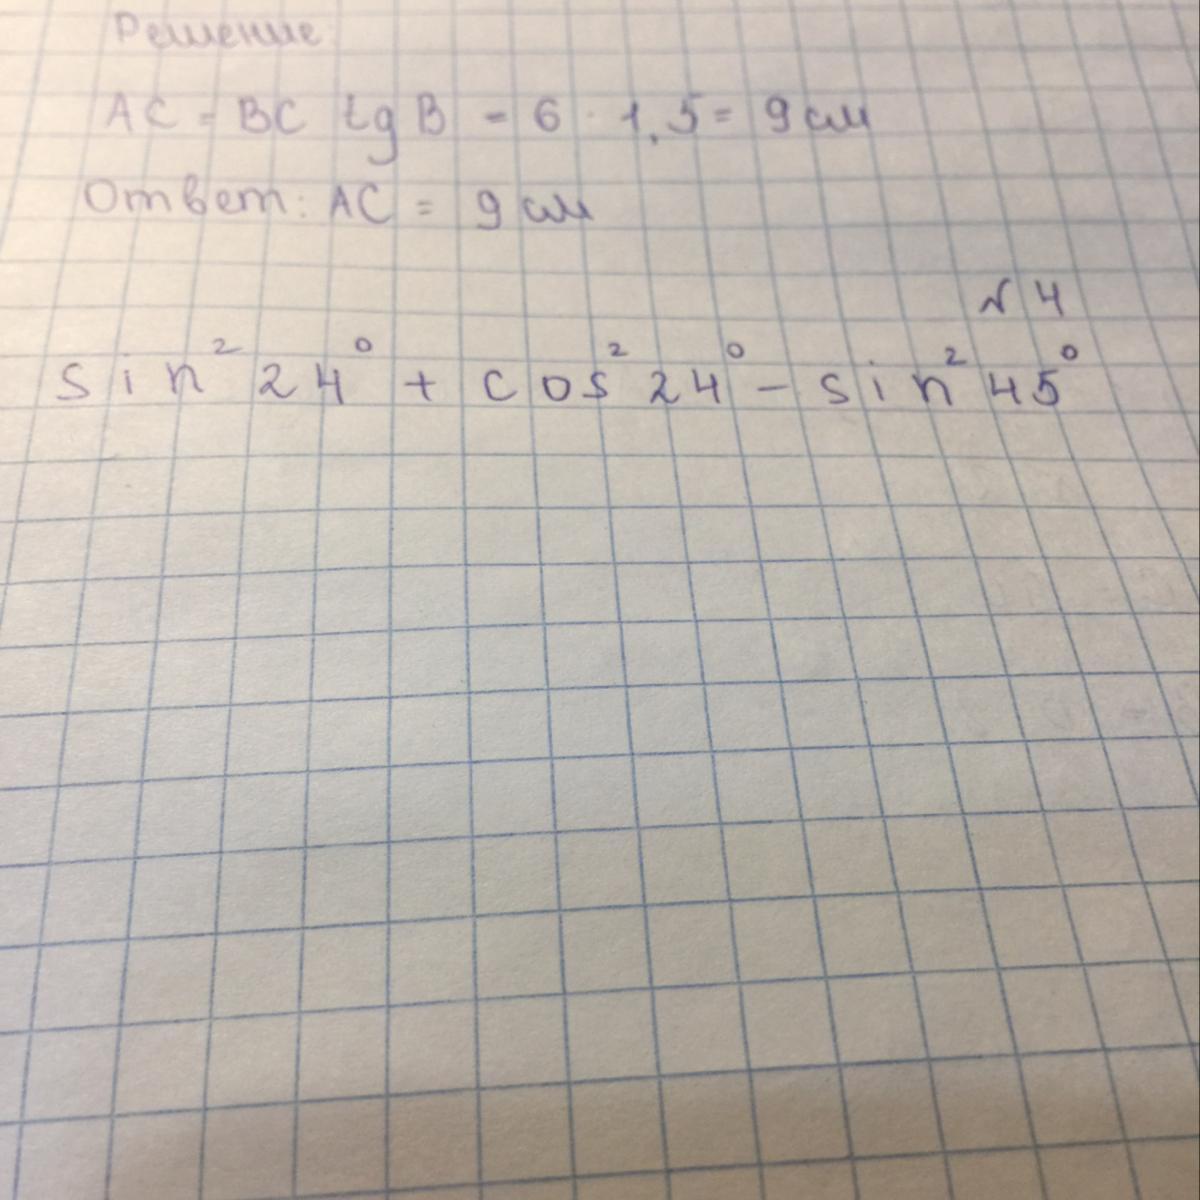 Решение
AC = BC tg B = 6 · 1,5 = 9 см
Ответ: AC = 9 см
№ 4
sin² 24° + cos² 24° - sin² 45°